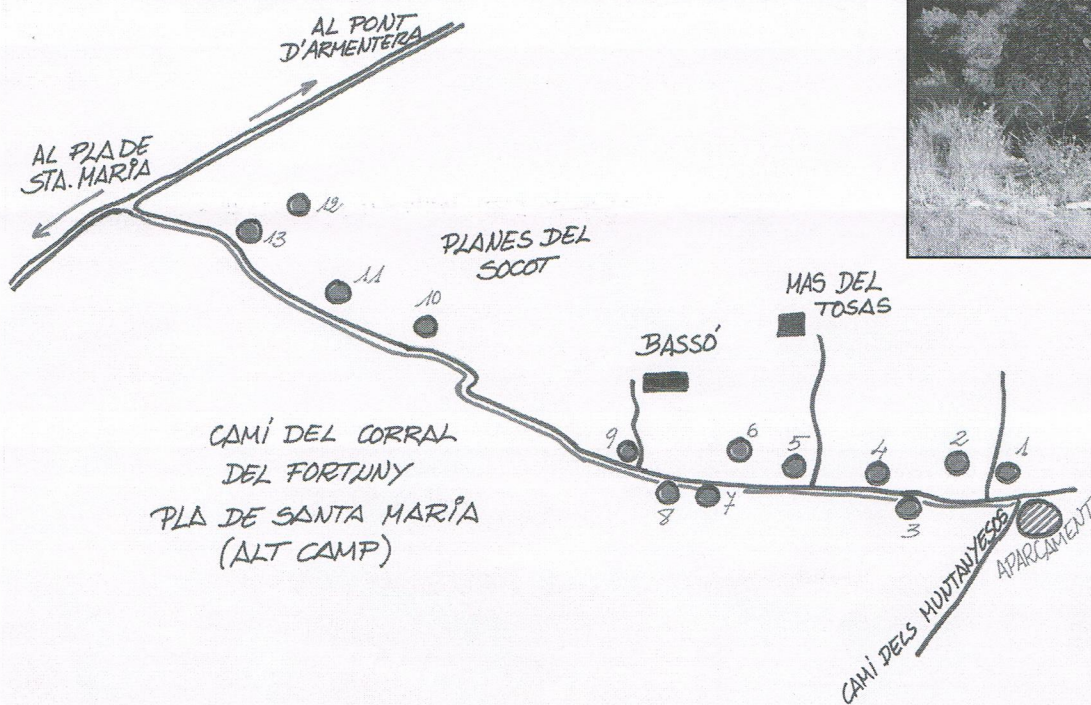 AL PONT
D'ARMENTERA
AL PLA DE
STA. MARIA
12
13
PLANES DEL
SOCOT
11
10
MAS DEL
TOSAS
BASSÓ
CAMÍ DEL CORRAL
DEL FORTUNY
PLA DE SANTA MARIA
(ALT CAMP)
9
6
5
4
2
1
8
7
3
APARCAMENT
CAMÍ DELS MUNTANYESOS